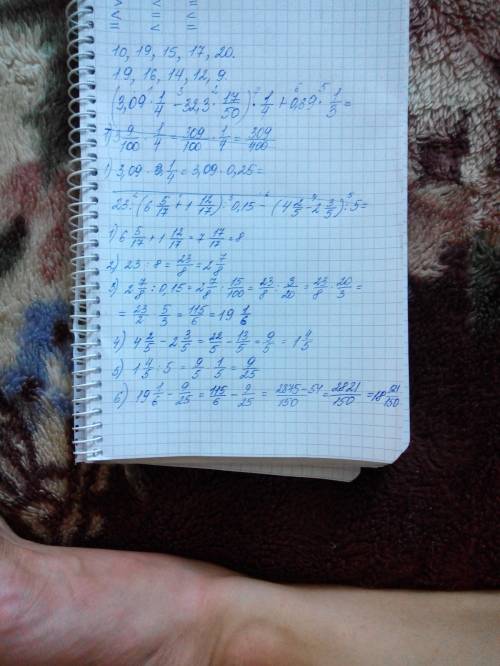 > < =
< < <
= = =
10, 19, 15, 17, 20.
19, 16, 14, 12, 9.
(3,09 · 1/4 − 32,3 · 17/50) · 1/4 + 0,39 · 1/3 =
9/100 · 1/4 = 309/100 · 1/4 = 309/400
1) 3,09 · 1/4 = 3,09 · 0,25 =
23 : (6 5/17 + 1 12/17) : 0,15 − (4 2/5 − 2 3/5) : 5 =
1) 6 5/17 + 1 12/17 = 7 17/17 = 8
2) 23 : 8 = 23/8 = 2 7/8
3) 2 7/8 : 0,15 = 2 7/8 : 15/100 = 23/8 : 3/20 = 23/8 · 20/3 =
= 23/2 · 5/3 = 115/6 = 19 1/6
4) 4 2/5 − 2 3/5 = 22/5 − 13/5 = 9/5 = 1 4/5
5) 1 4/5 : 5 = 9/5 · 1/5 = 9/25
6) 19 1/6 − 9/25 = 115/6 − 9/25 = 2875−54/150 = 2821/150 = 18 /150